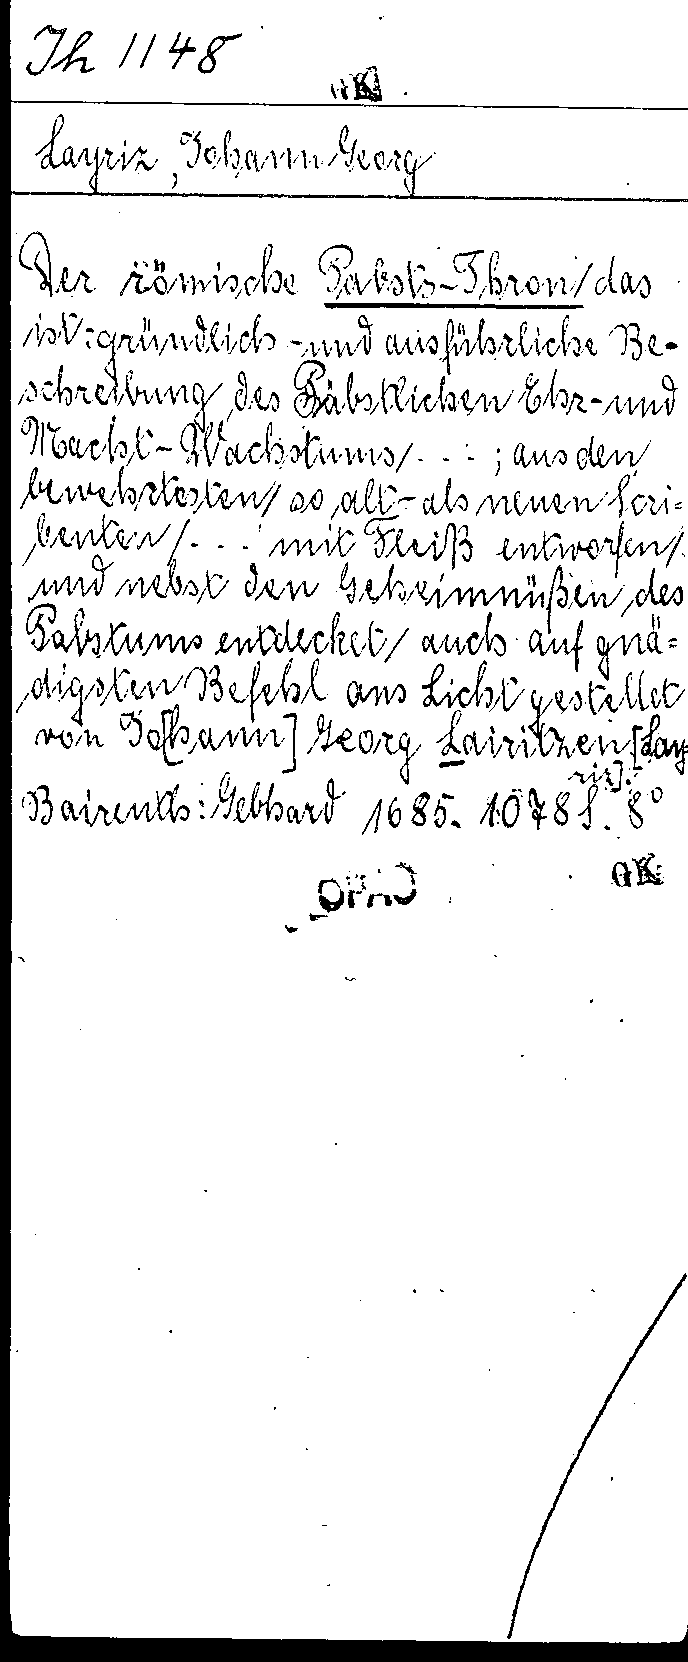 Th 1148
GK
Layriz, Johann Georg
Der römische Pabsts-Thron/ das
ist: gründlich- und ausführliche Be-
schreibung des Päbstlichen Ehr- und
Macht-Wachstums/...; aus den
bewehrtesten/ so alt- als neuen Scri=
benten/... mit Fleiß entworfen/
und nebst den Geheimnüßen des
Pabstums entdecket/ auch auf gnä=
digsten Befehl ans Licht gestellet
von Jo[hann] Georg Lairitzen [Lay-
riz].-
Baireuth: Gebhard 1685. 1078 S. 8°
OPAC
GK